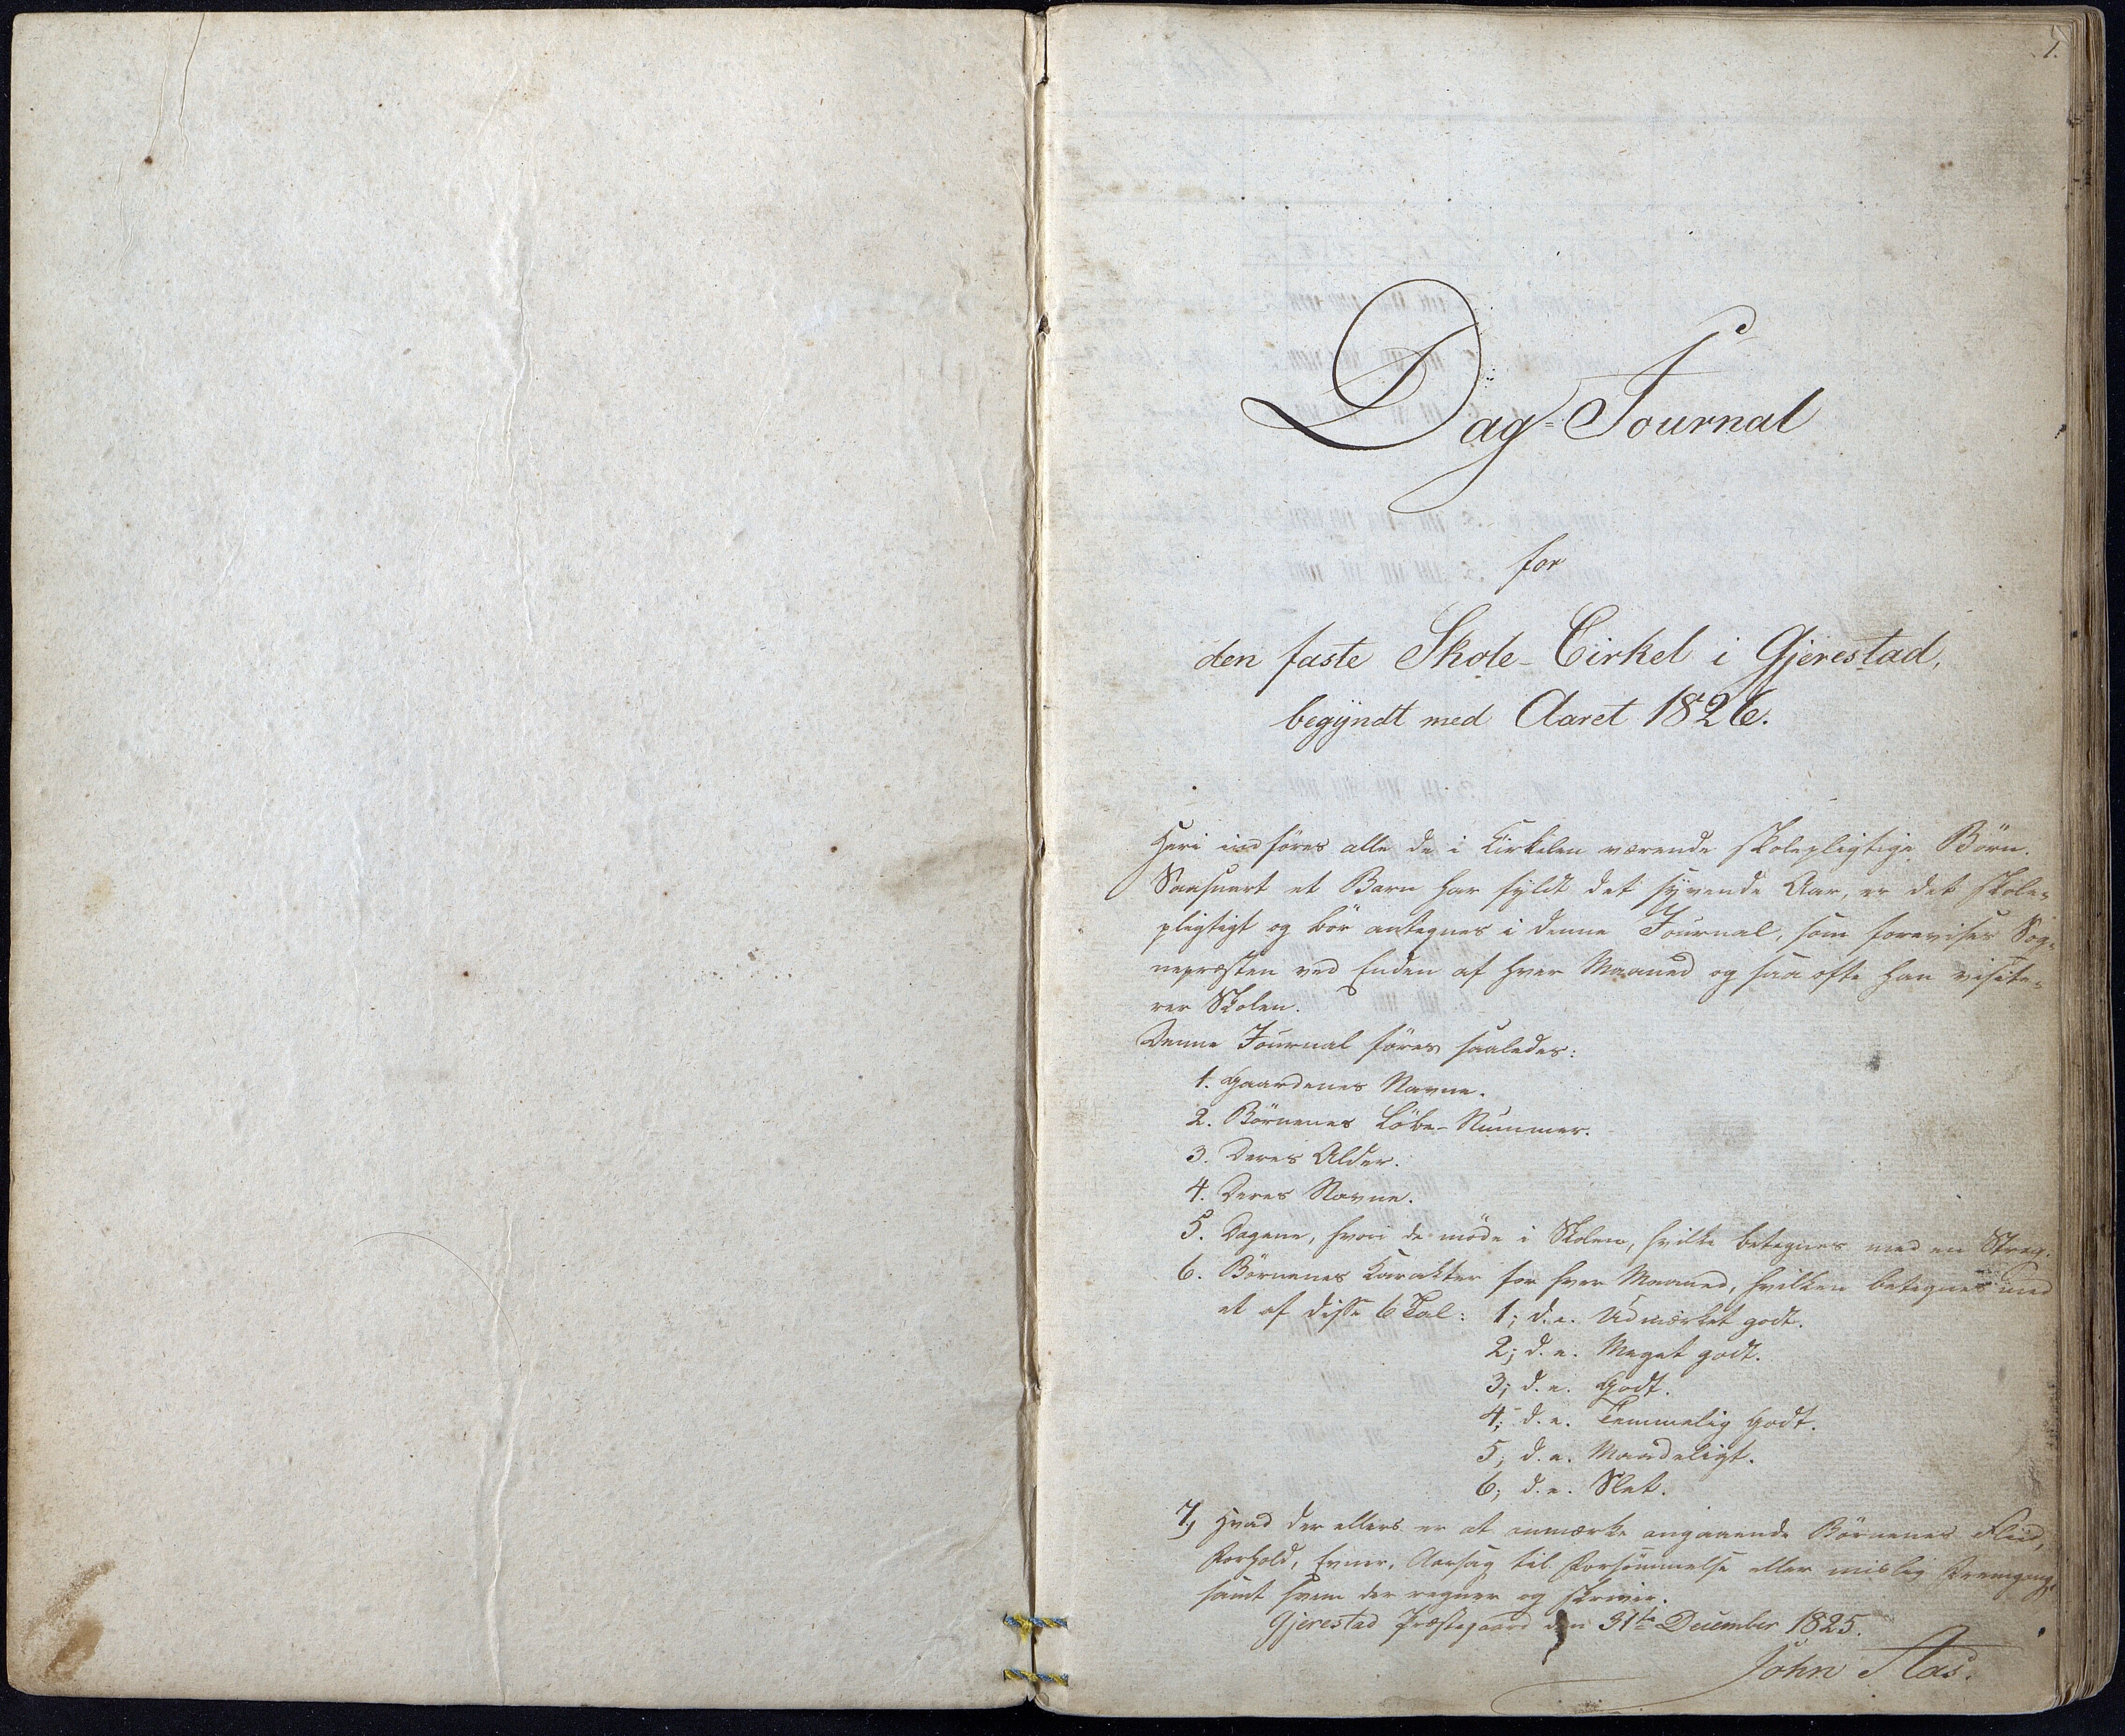 1.
Dag-Journal
for
den faste Skole-Cirkel i Gjerestad,
begyndt med Aaret 1826.
Heri indføres alle de i Cirkelen værende skolepligtige Börn.
Saasnart et Barn har fyldt det syvende Aar, er det skole-
pligtigt og bör antegnes i denne Journal, som forevises Sog-
nepræsten ved Enden af hver Maaned og saa ofte han visite-
rer Skolen.
Denne Journal föres saaledes:
1. Gaardenes Navne.
2. Börnenes Löbe-Nummer.
3. Deres Alder.
4. Deres Navne.
5. Dagene, hvori de möde i Skolen, hvilke betegnes med en Streg.
6. Börnenes Karakter for hver Maaned, hvilken betegnes med
et af disse 6 Tal: 1; d.e. Udmærket godt.
2; d.e. Meget godt.
3; d.e. Godt.
4; d.e. Temmelig Godt.
5; d.e. Maadeligt.
6; d.e. Slet.
7, Hvad der ellers er at anmærke angaaende Börnenes Fliid,
Forhold, Evner, Aarsag til Forsömmelse eller mislig Fremgang,
samt hvem der regner og skriver.
Gjerestad Præstegaard den 31te December 1825.
John Aas.